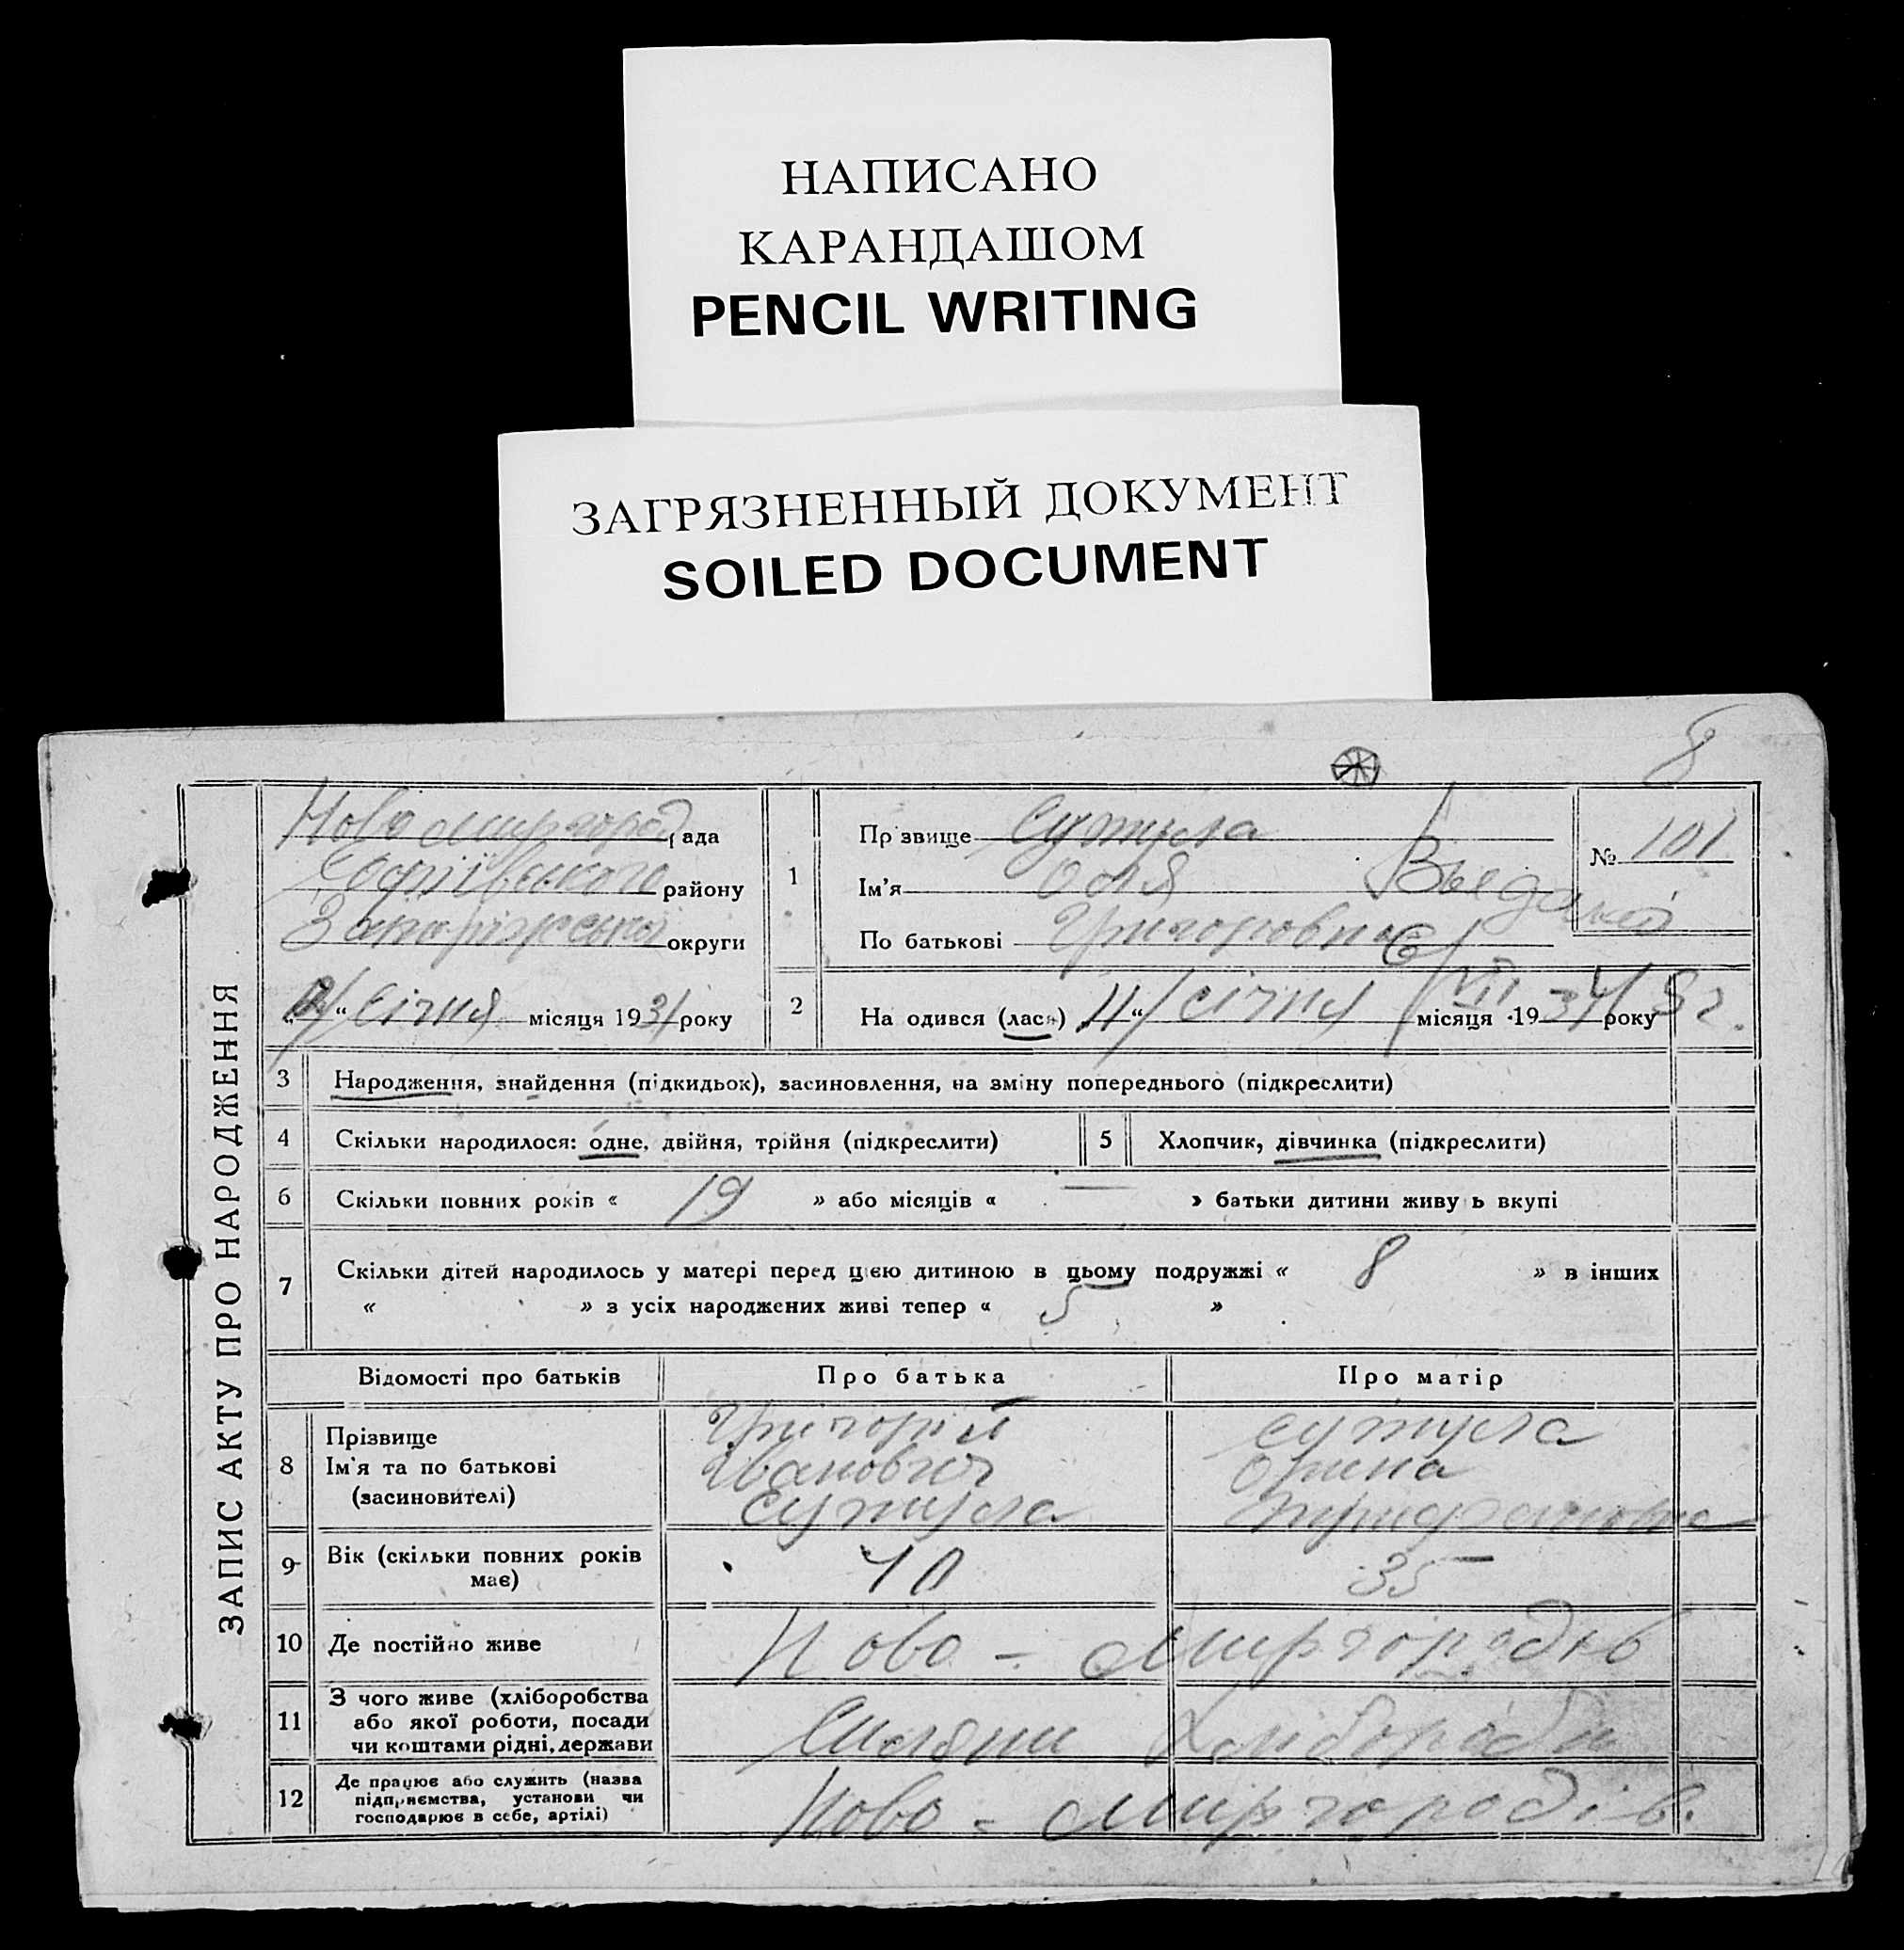 НАПИСАНО
КАРАНДАШОМ
PENCIL WRITING
ЗАГРЯЗНЕННЫЙ ДОКУМЕНТ
SOILED DOCUMENT
8
ЗАПИС АКТУ ПРО НАРОДЖЕННЯ
рада
Софіївського району
Запоріжської округи
“ Січня місяця 1931 року
1
Прізвище Сутула
Ім'я Оля
По батькові Григоровна
№ 101
2
На одився (лася) 11 “ січня місяця 1931 року
3 Народження, знайдення (підкидьок), засиновлення, на зміну попереднього (підкреслити)
4 Скільки народилося: одне, двійня, трійня (підкреслити)
5 Хлопчик, дівчинка (підкреслити)
6 Скільки повних років « 19 » або місяців « — » батьки дитини живуть вкупі
7 Скільки дітей народилось у матері перед цією дитиною в цьому подружжі « 8 » в інших
« » з усіх народжених живі тепер « 5 »
Відомості про батьків Про батька Про матір
8 Прізвище
Ім'я та по батькові
(засиновителі)
Григорій
Іванович
Сутула
Сутула
Орина
9 Вік (скільки повних років
має)
40
35
10 Де постійно живе
Ново - Миргородів
11 З чого живе (хліборобства
або якої роботи, посади
чи коштами рідні, держави
Хлібороби
12 Де працює або служить (назва
підприємства, установи чи
господарює в себе, артілі)
Ново - Миргородів.